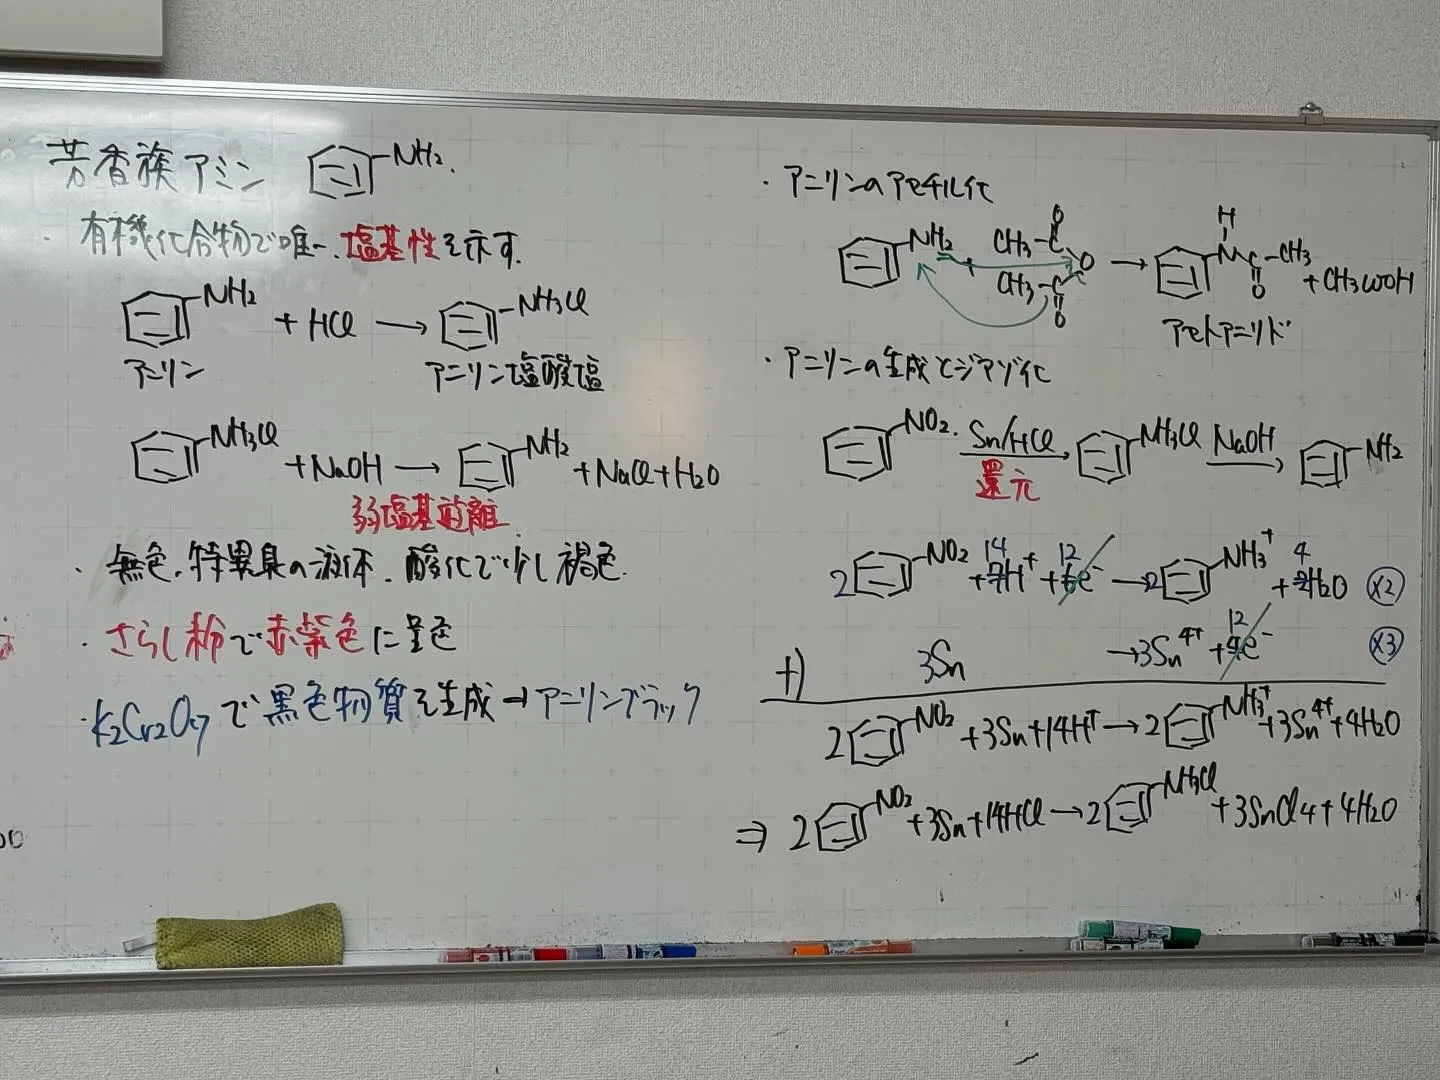 芳香族アミン NH2.
・有機化合物で唯一、塩基性を示す.
NH2 + HCl → NH3Cl
アニリン アニリン塩酸塩
NH3Cl + NaOH → NH2 + NaCl + H2O
弱塩基遊離
・無色、特異臭の液体. 酸化で少し褐色.
・さらし粉で赤紫色に呈色
・K2Cr2O7で黒色物質を生成→アニリンブラック
・アニリンのアセチル化
NH2 + CH3-C O CH3-C O O → H N-C-CH3 O + CH3COOH
アセトアニリド
・アニリンの生成とジアゾ化
NO2. Sn/HCl → NH3Cl NaOH → NH2
還元
2 NO2 + 14H+ + 12e- → 2 NH3+ + 4H2O (×2)
+) 3Sn → 3Sn4+ + 12e- (×3)
2 NO2 + 3Sn + 14H+ → 2 NH3+ + 3Sn4+ + 4H2O
⇒ 2 NO2 + 3Sn + 14HCl → 2 NH3Cl + 3SnCl4 + 4H2O